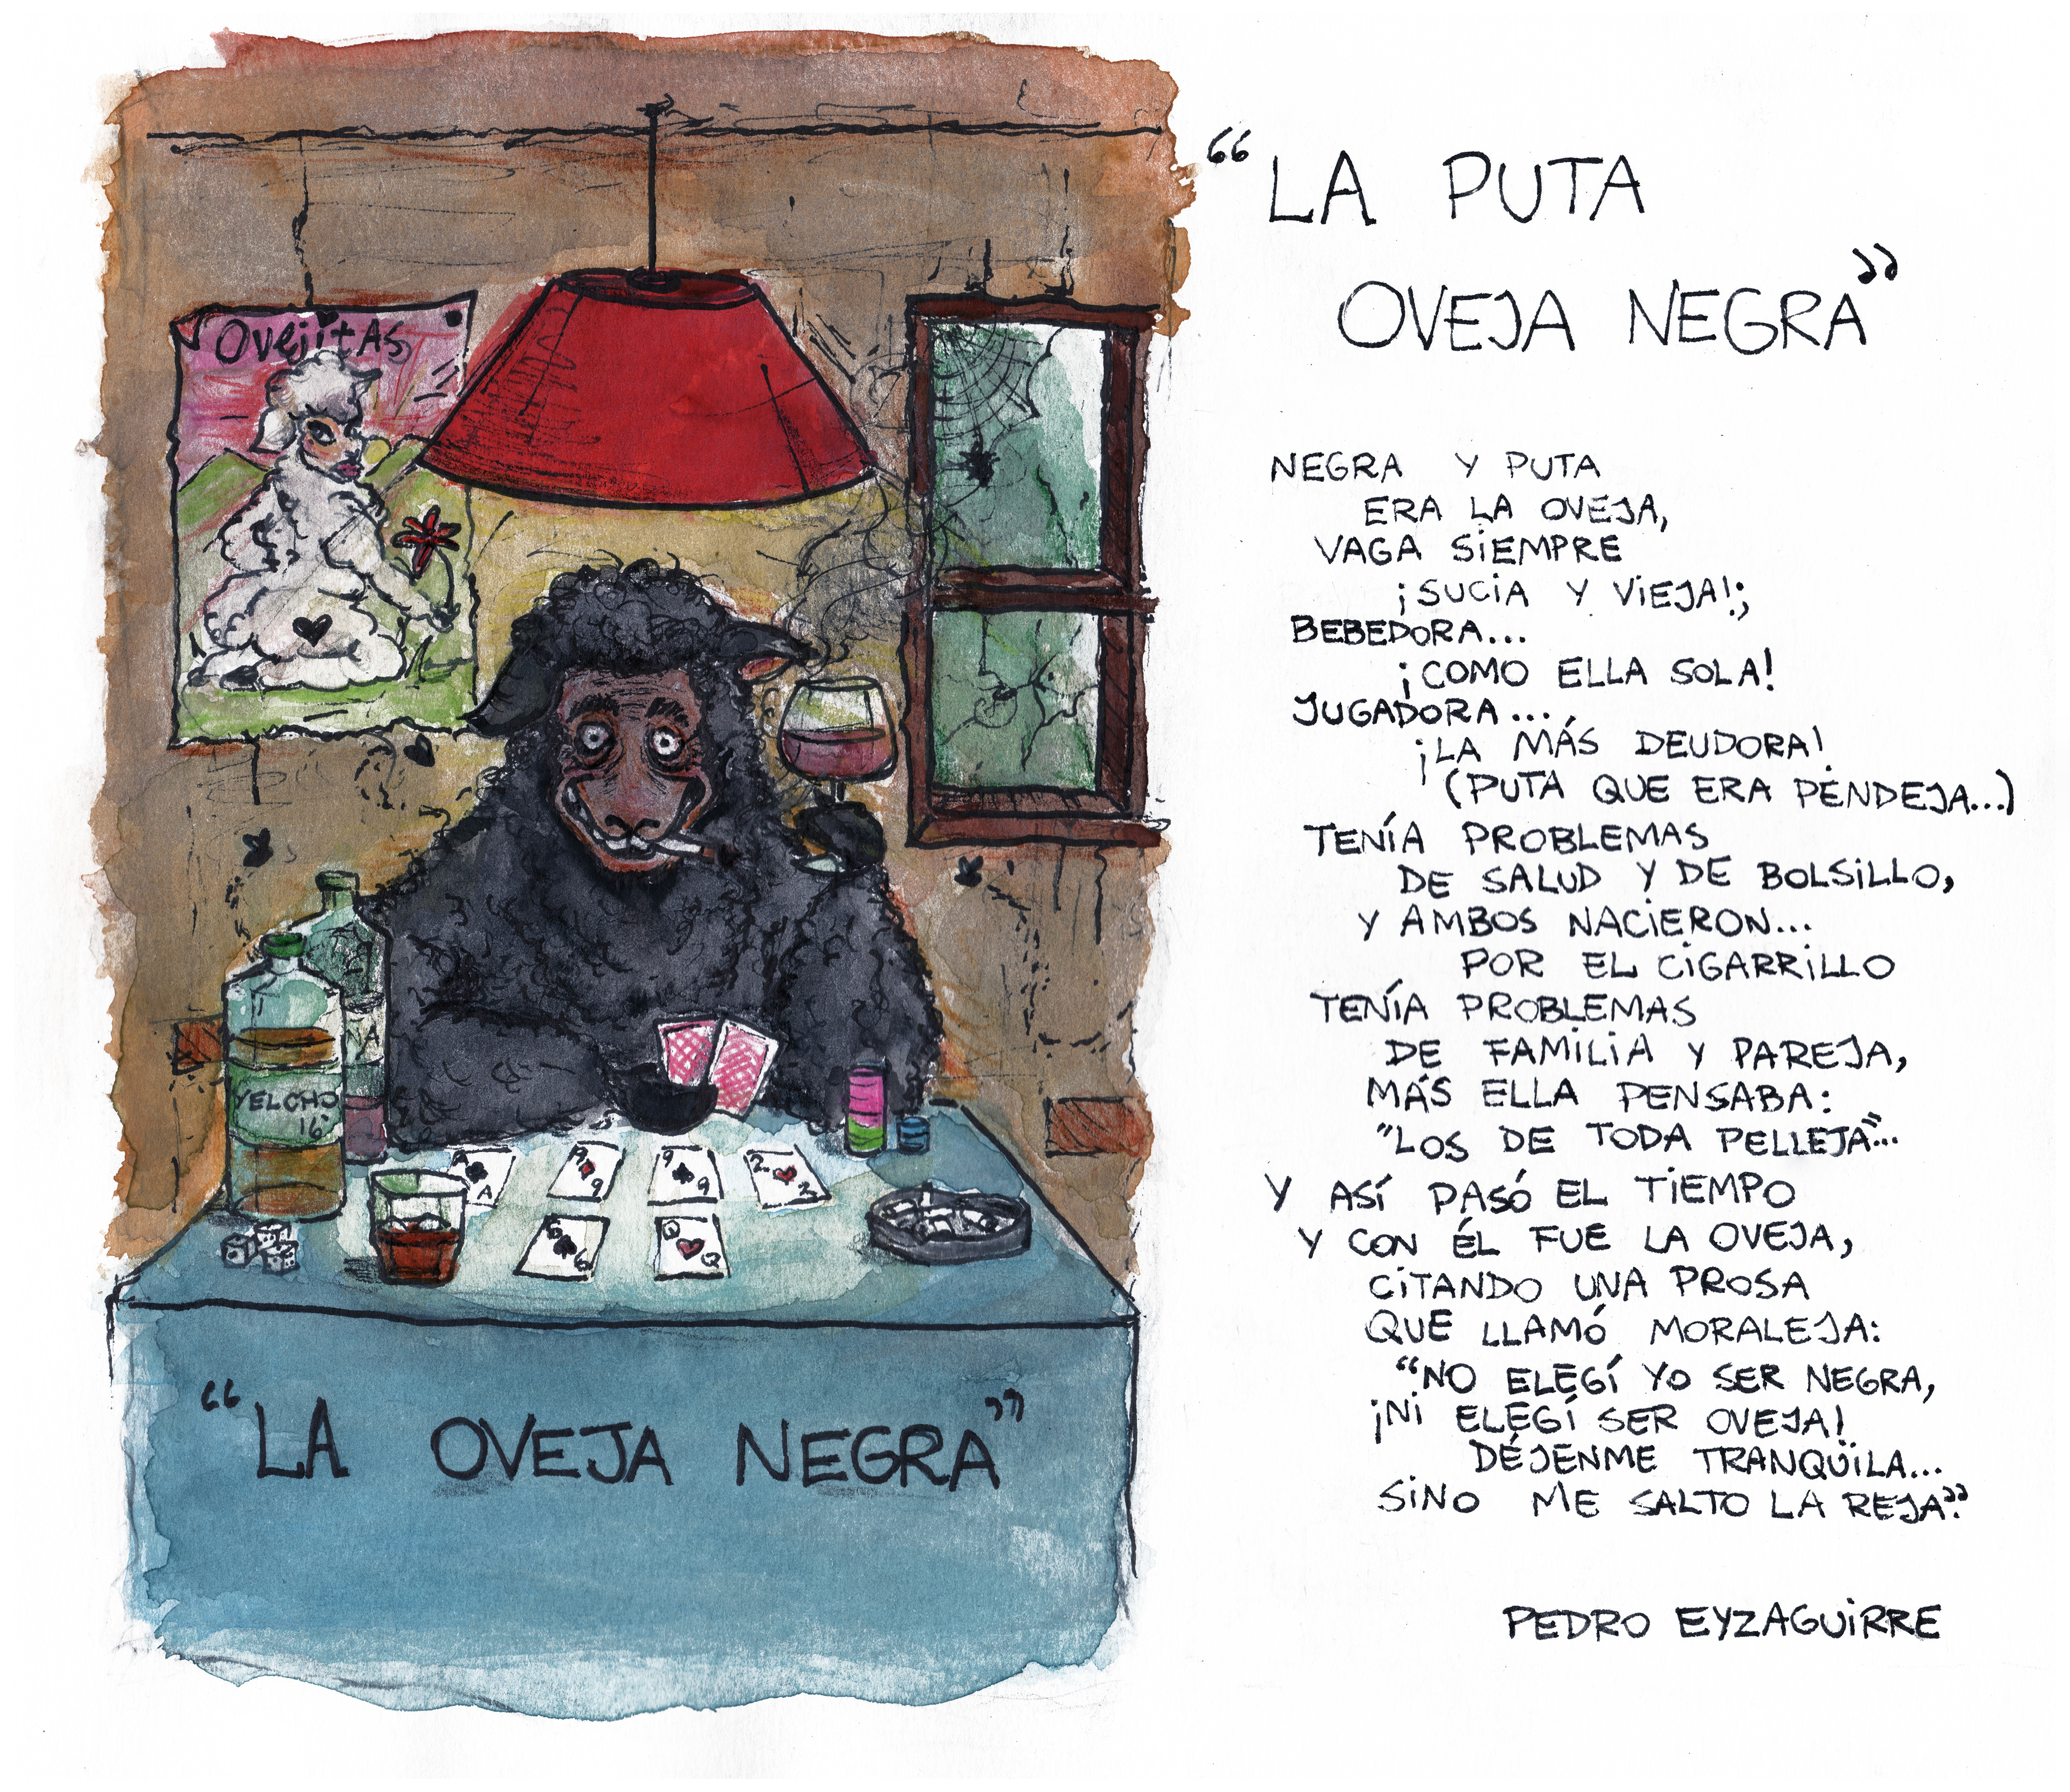 Ovejitas
YELCHO
16°
A
A
9
9
9
2
2
6
6
Q
Q
"LA OVEJA NEGRA"
"LA PUTA
OVEJA NEGRA"
NEGRA Y PUTA
ERA LA OVEJA,
VAGA SIEMPRE
¡SUCIA Y VIEJA!;
BEBEDORA...
¡COMO ELLA SOLA!
JUGADORA...
¡LA MÁS DEUDORA!
(PUTA QUE ERA PENDEJA...)
TENÍA PROBLEMAS
DE SALUD Y DE BOLSILLO,
Y AMBOS NACIERON...
POR EL CIGARRILLO
TENÍA PROBLEMAS
DE FAMILIA Y PAREJA,
MÁS ELLA PENSABA:
"LOS DE TODA PELLEJA"...
Y ASÍ PASÓ EL TIEMPO
Y CON ÉL FUE LA OVEJA,
CITANDO UNA PROSA
QUE LLAMÓ MORALEJA:
"NO ELEGÍ YO SER NEGRA,
¡NI ELEGÍ SER OVEJA!
DÉJENME TRANQUILA...
SINO ME SALTO LA REJA".
PEDRO EYZAGUIRRE